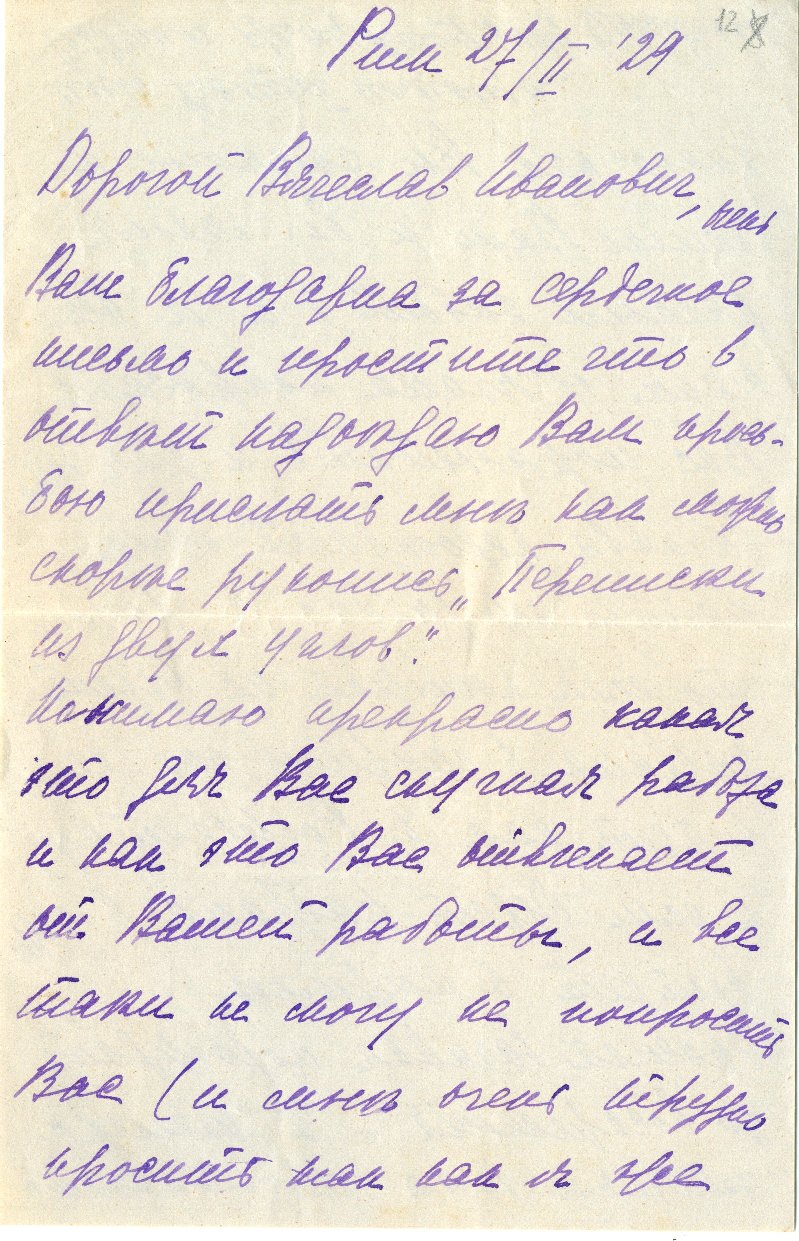 12
Рим 27/II '29
Дорогой Вячеслав Иванович, очень
Вам благодарна за сердечное
письмо и простите что в
отвѣт надоѣдаю Вам прось-
бою прислать мнѣ как можно
скорѣе рукопись „Переписки
из двух углов".
Понимаю прекрасно какая
это для Вас скучная работа
и как это Вас отвлекает
от Вашей работы, и все
таки не могу не попросить
Вас (и мнѣ очень трудно
просить так как я же